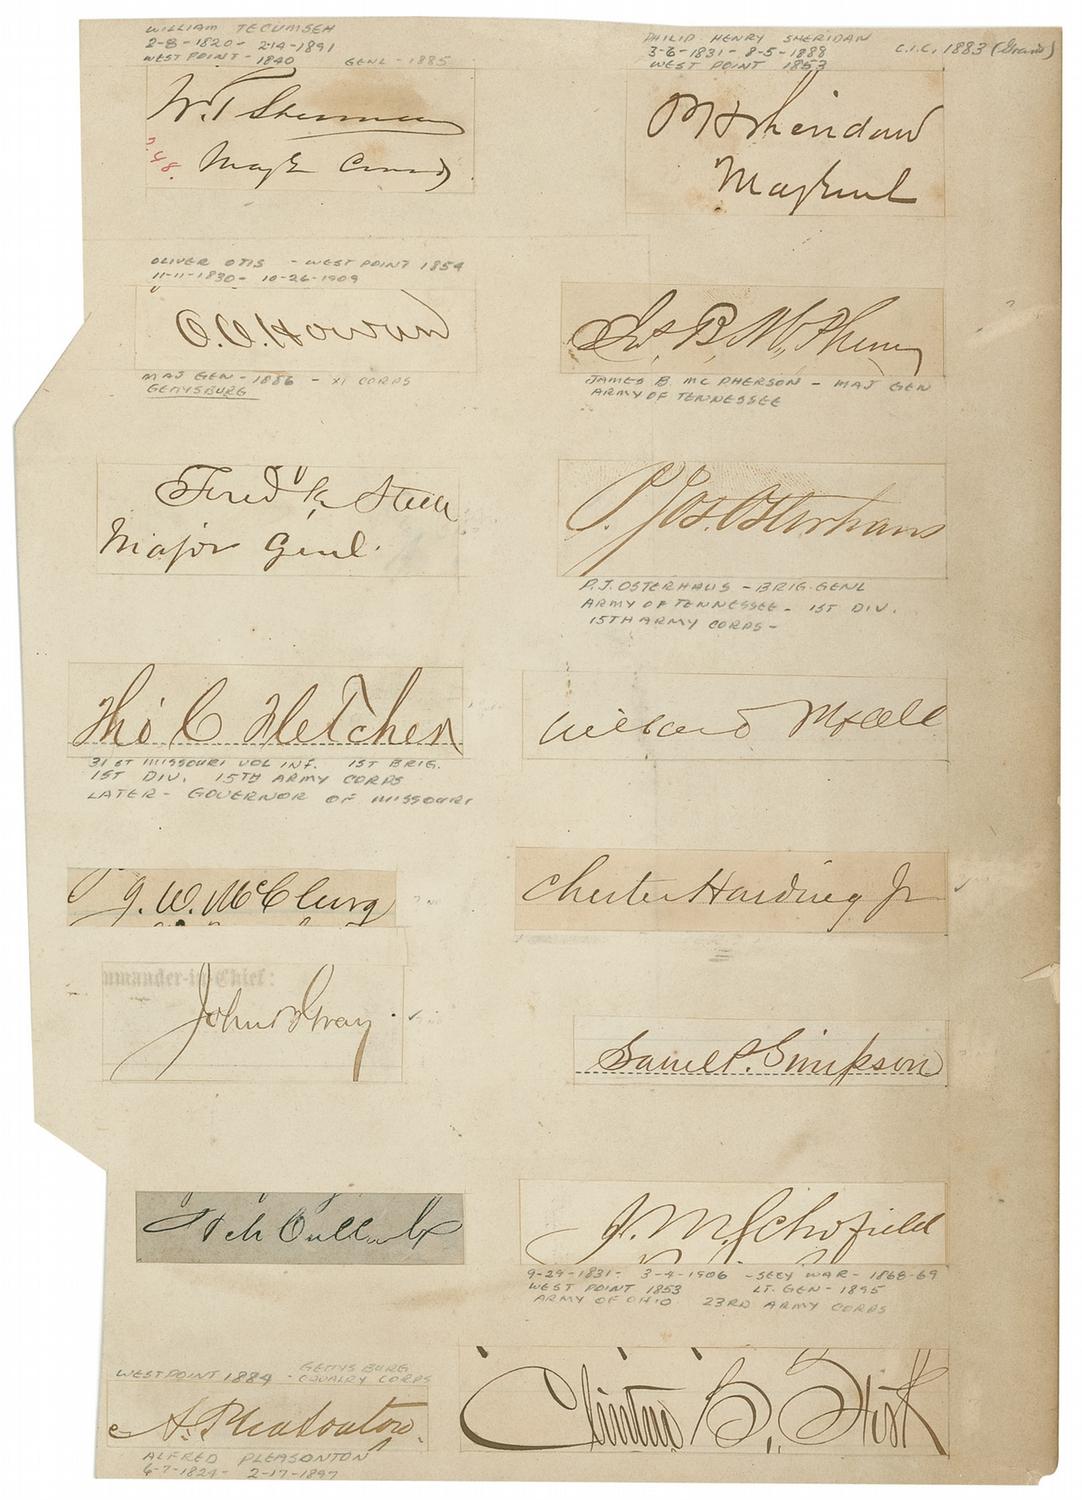 WILLIAM TECUMSEH
2-8-1820- 2-14-1891
WEST POINT - 1840 GENL - 1885
W. T. Sherman
Maj Genl Comdg
PHILIP HENRY SHERIDAN
3-6-1831- 8-5-1888 C.I.C. 1883 (Grand)
WEST POINT 1853
P H Sheridan
Maj Genl
OLIVER OTIS - WEST POINT 1854
11-11-1830- 10-26-1909
O. O. Howard
MAJ GEN - 1886 - XI CORPS
GETTYSBURG
Jas. B. McPherson
JAMES B. MC PHERSON - MAJ GEN
ARMY OF TENNESSEE
Fred'k Steele
Major Genl.
P. Jos. Osterhaus
P.J. OSTERHAUS - BRIG. GENL
ARMY OF TENNESSEE - 1ST DIV.
15TH ARMY CORPS -
Tho C Fletcher
31 ST MISSOURI VOL INF. 1ST BRIG.
1ST DIV. 15TH ARMY CORPS
LATER - GOVERNOR OF MISSOURI
Willard
J. W. McClurg
Chester Harding Jr
mmander-in-Chief:
John B Gray
Saml P. Simpson
J. M. Schofield
9-29-1831- 3-4-1906 - SECY WAR - 1868-69
WEST POINT 1853 LT. GEN - 1895
ARMY OF OHIO 23RD ARMY CORPS
WEST POINT 1884 GETTYSBURG
- CAVALRY CORPS
A. Pleasonton
ALFRED PLEASONTON
6-7-1824- 2-17-1897
Clinton B. Fisk